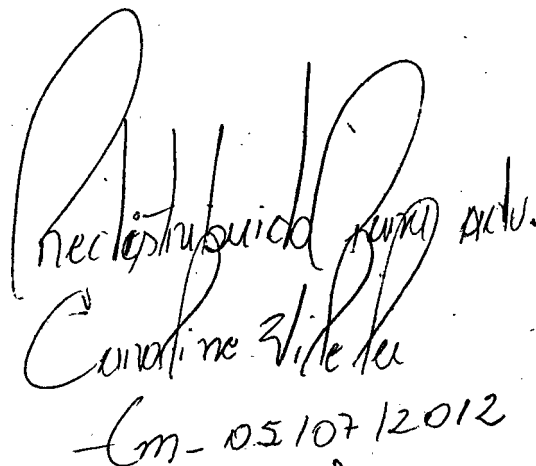 Redistribuido para adv.
Caroline Vilela
Em - 05/07/2012